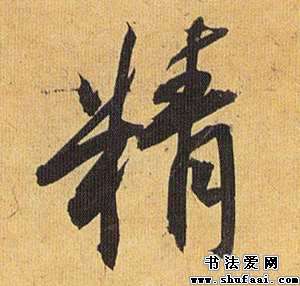 精
书法爱网
www.shufaai.com